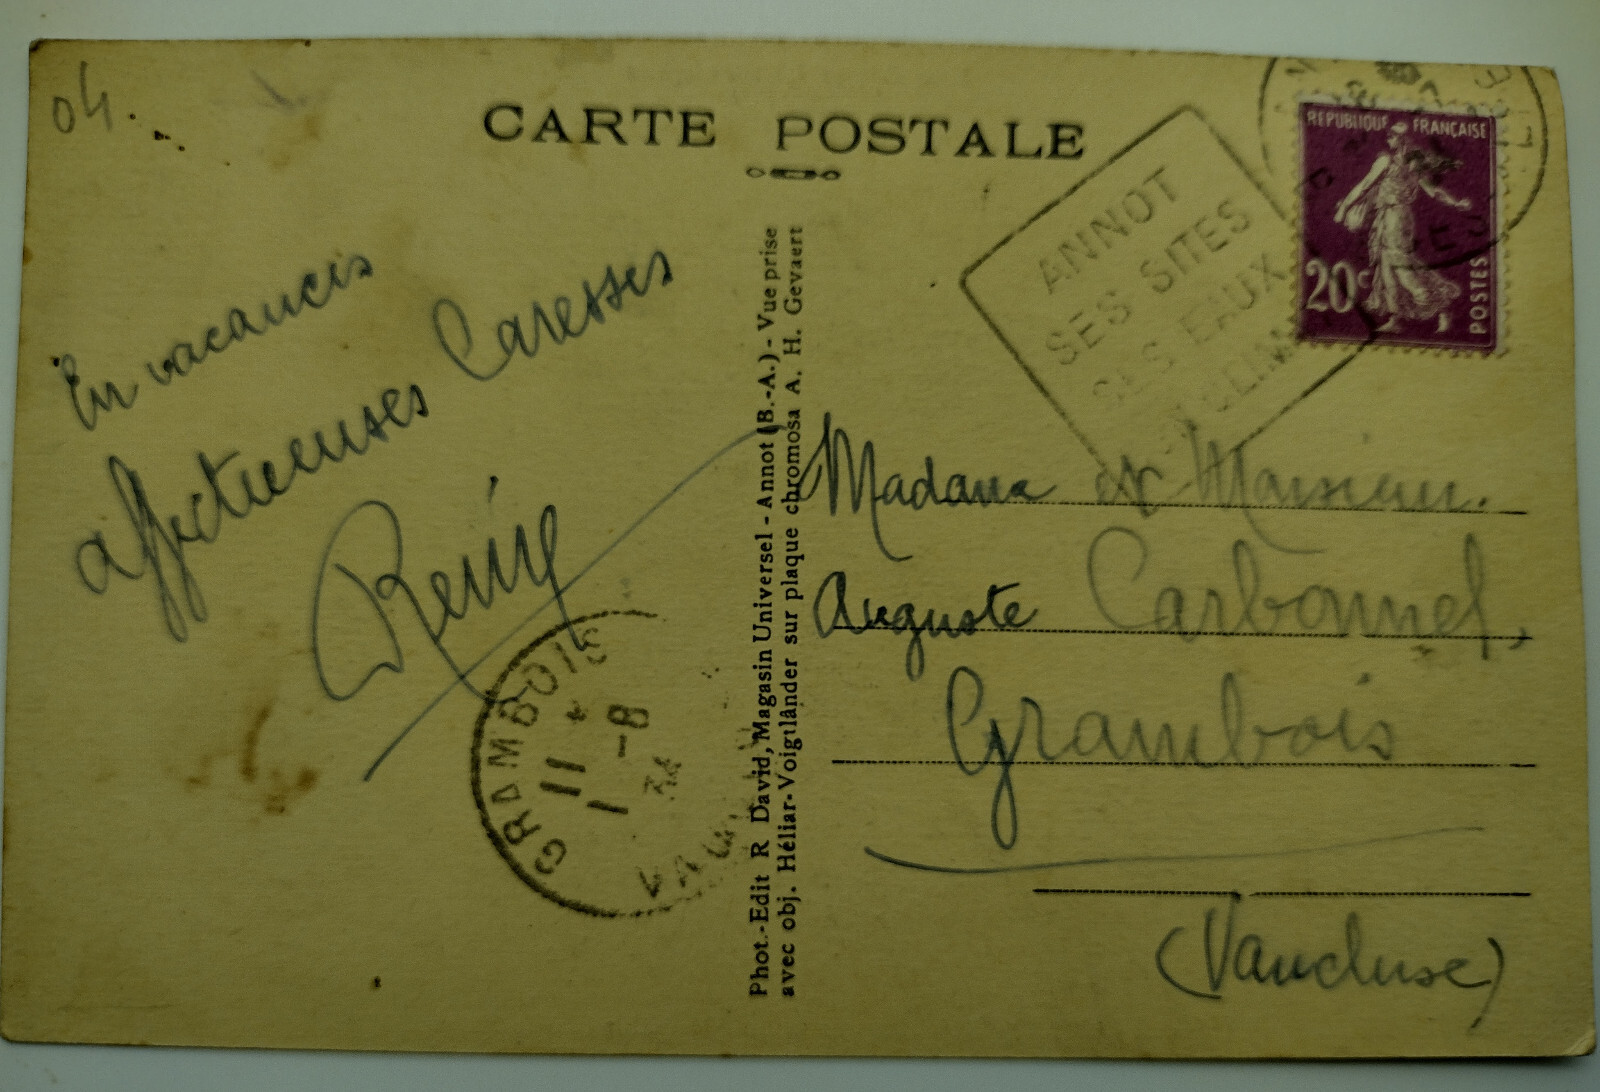 04.
CARTE POSTALE
REPUBLIQUE FRANÇAISE
20c
POSTES
ANNOT
SES SITES
SES EAUX
CLIM
En vacances
affectueuses Caresses
Phot.-Edit R David, Magasin Universel - Annot (B.-A.) - Vue prise
avec obj. Héliar-Voigtländer sur plaque chromosa A. H. Gevaert
Madame et Monsieur.
Auguste Carbonnel,
Grambois
(Vaucluse)
GRAMBOIS
11
1-8
34